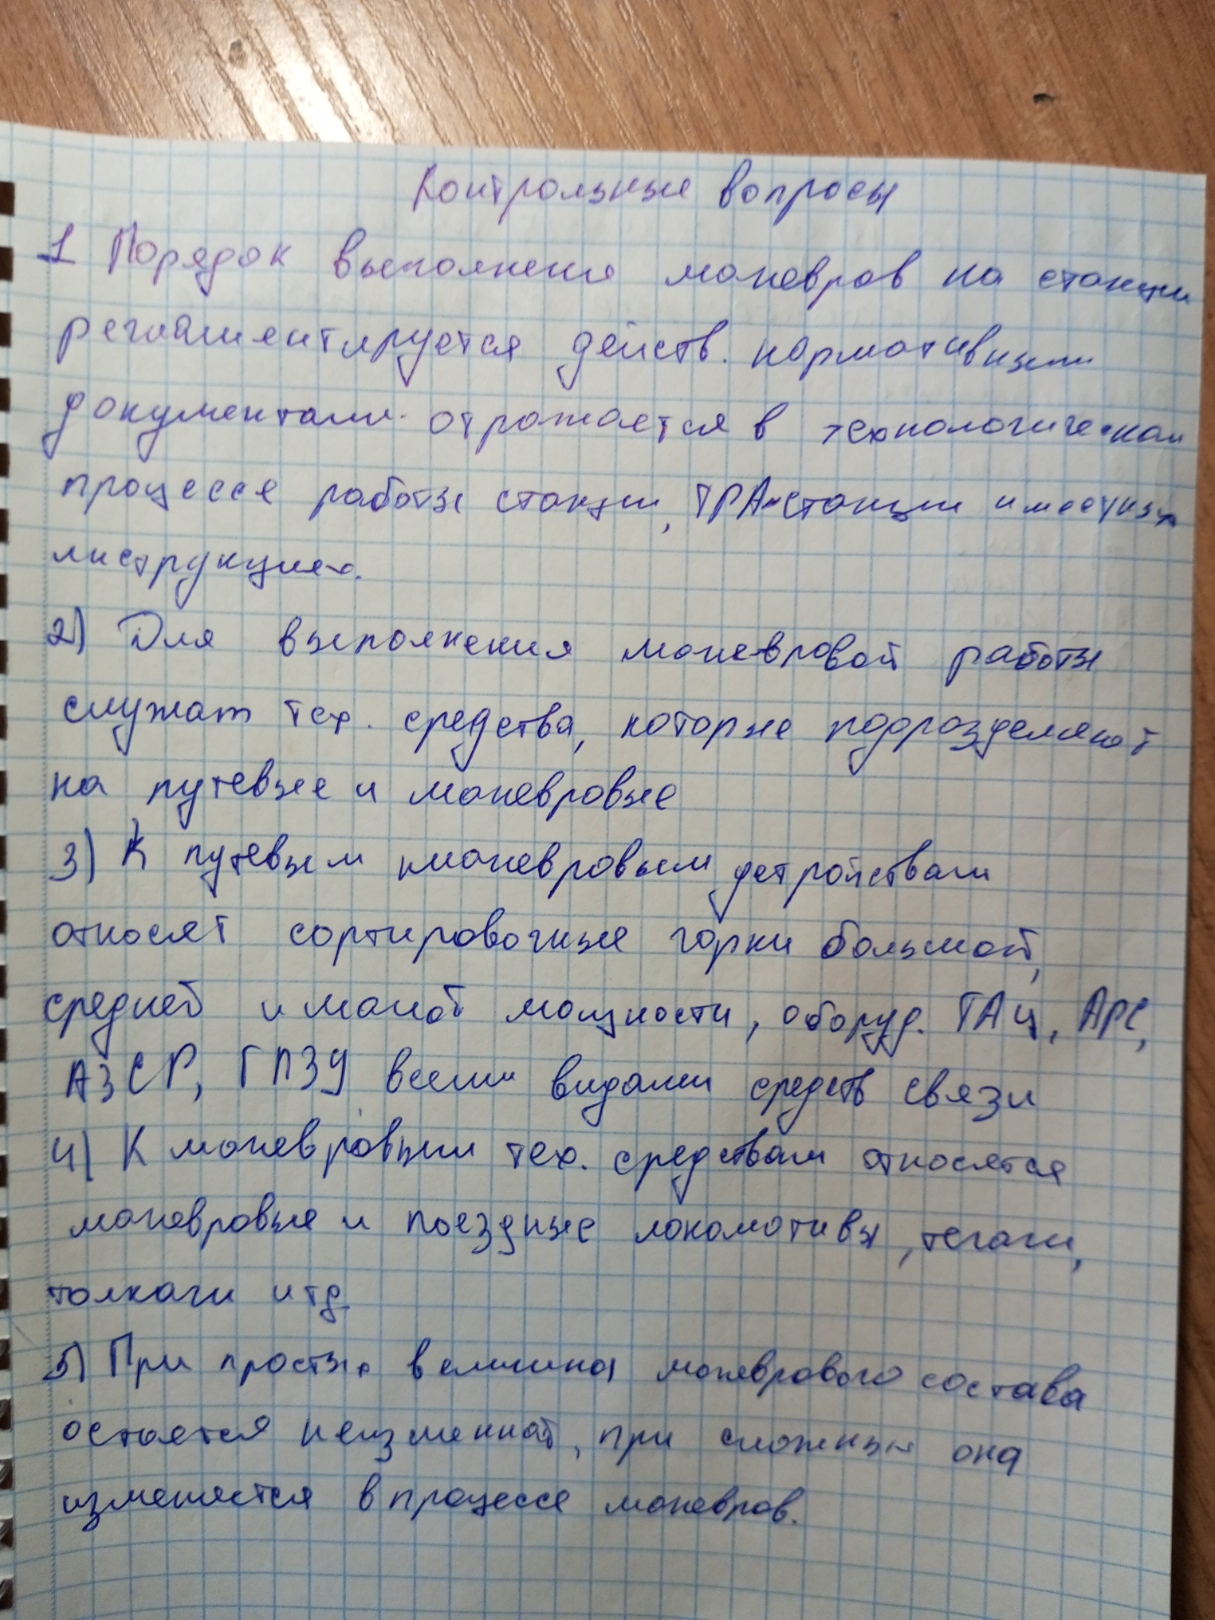 Контрольные вопросы
1 Порядок выполнения маневров на станции
регламентируется действ. нормативными
документами. отражается в технологическом
процессе работы станции, ТРА-станции и местных
инструкциях.
2) Для выполнения маневровой работы
служат тех. средства, которые подразделяют
на путевые и маневровые
3) К путевым маневровым устройствам
относят сортировочные горки большой,
средней и малой мощности, оборуд. ГАЦ, АРС,
АЗСР, ГПЗУ всеми видами средств связи
4) К маневровым тех. средствам относятся
маневровые и поездные локомотивы, тягачи,
толкачи и тд
5) При простых величина маневрового состава
остается неизменной, при сложных она
изменяется в процессе маневров.